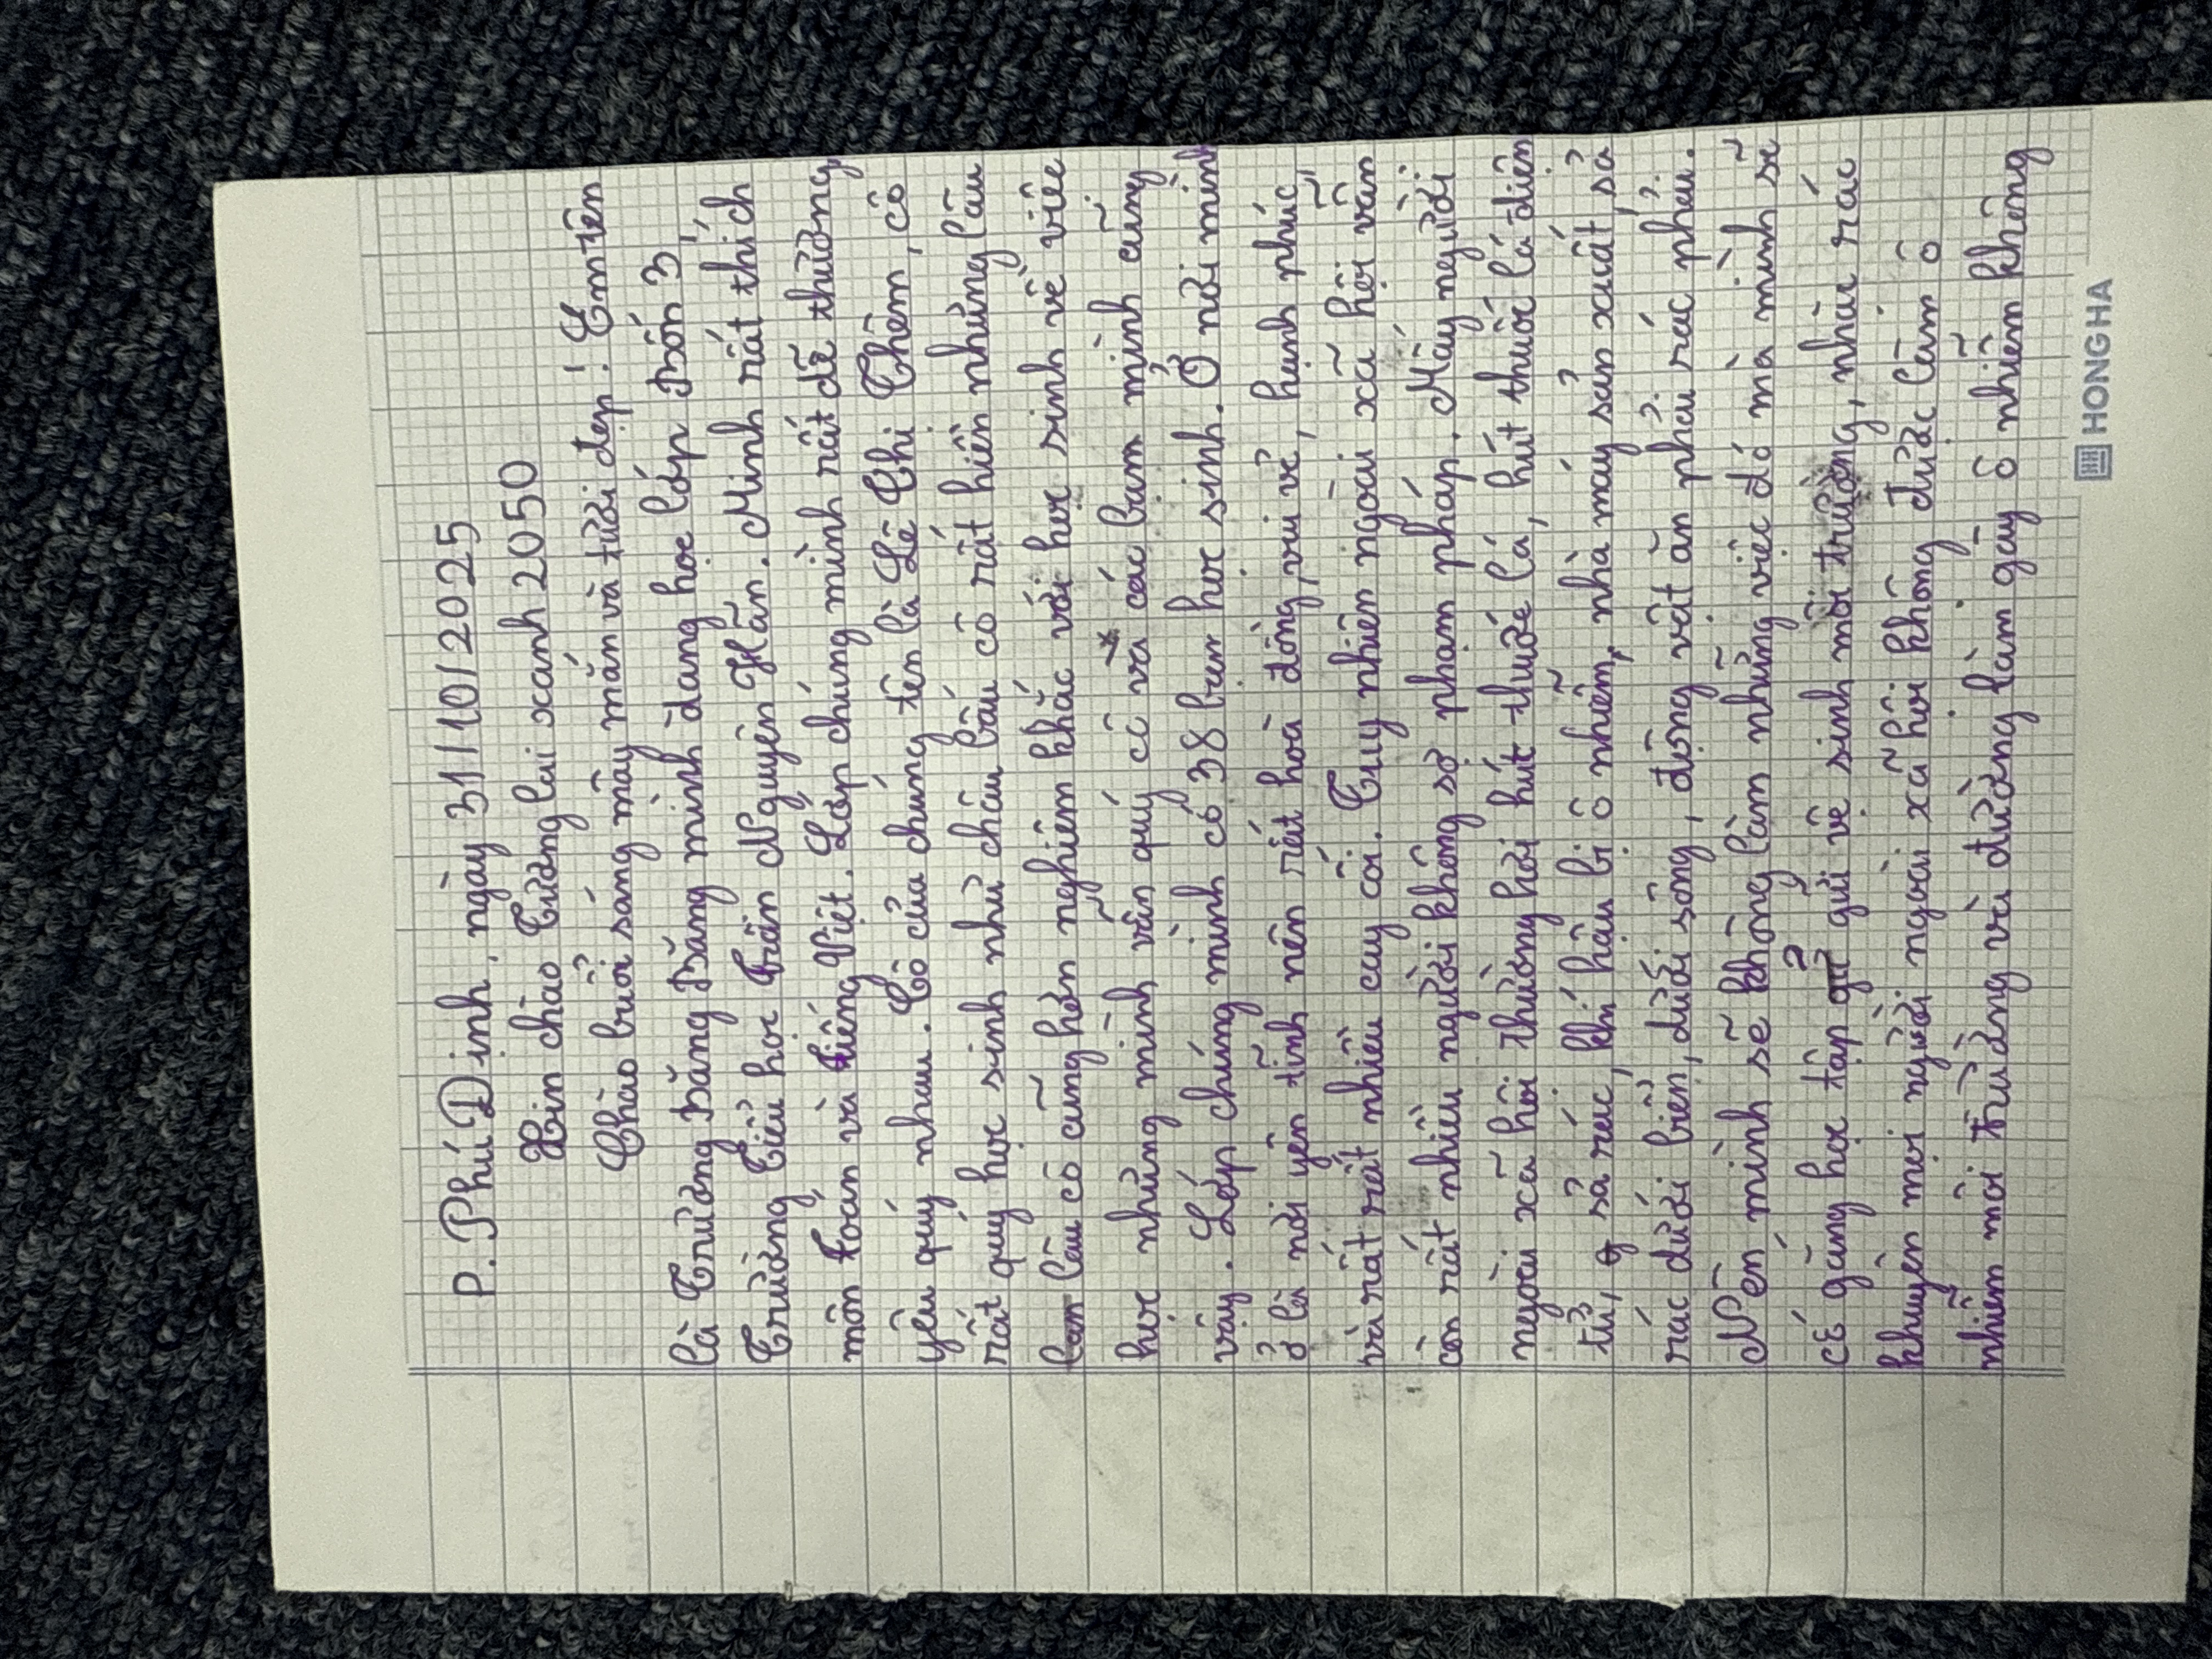 P. Phú Định, ngày 31/10/2025
Xin chào Tương lai xanh 2050
Chào buổi sáng mây mắn và tươi đẹp! Em tên
là Trương Băng Băng mình đang học lớp Bốn 3,
Trường Tiểu học Trần Nguyên Hãn. Mình rất thích
môn toán và tiếng Việt. Lớp chúng mình rất dễ thương
yêu quý nhau. Cô của chúng tên là Lê Thị Thêm, cô
rất quý học sinh như châu báu cô rất hiền nhưng lâu
lâu cô cũng hơn nghiêm khắc với học sinh về việc
học nhưng mình vẫn quý cô và các bạn mình cũng
vậy. Lớp chúng mình có 38 bạn học sinh. Ở nơi mình
ở là nơi yên tĩnh nên rất hoà đồng, vui vẻ, hạnh phúc,
và rất rất nhiều cây cối. Tuy nhiên ngoài xã hội vẫn
còn rất nhiều người không sợ phạm pháp. Mấy người
ngoài xã hội thường hỏi hút thuốc lá, hút thuốc lá điện
tử, sả rác, khí hậu bị ô nhiễm, nhà máy sản xuất sả
rác dưới biển, dưới sông, động vật ăn phải rác thải.
Nên mình sẽ không làm những việc đó mà mình sẽ
cố gắng học tập giữ vệ sinh môi trường, nhặt rác
khuyên mọi người ngoài xã hội không được làm ô
nhiễm môi trường và đường làm gây ô nhiễm không
HONG HA